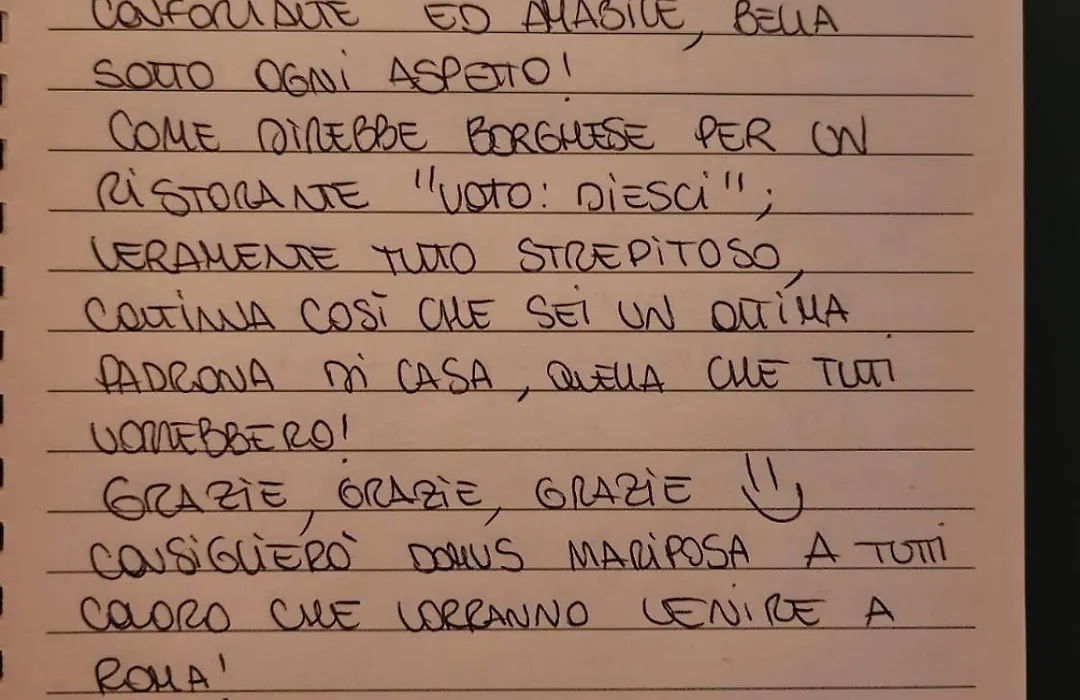 CONFORTANTE ED AMABILE, BELLA
SOTTO OGNI ASPETTO!
COME DIREBBE BORGHESE PER UN
RISTORANTE "VOTO: DIESCI";
VERAMENTE TUTTO STREPITOSO,
CONTINUA COSÌ CHE SEI UN OTTIMA
PADRONA DI CASA, QUELLA CHE TUTTI
VORREBBERO!
GRAZIE, GRAZIE, GRAZIE
CONSIGLIERÒ DOMUS MARIPOSA A TUTTI
COLORO CHE VORRANNO VENIRE A
ROMA!